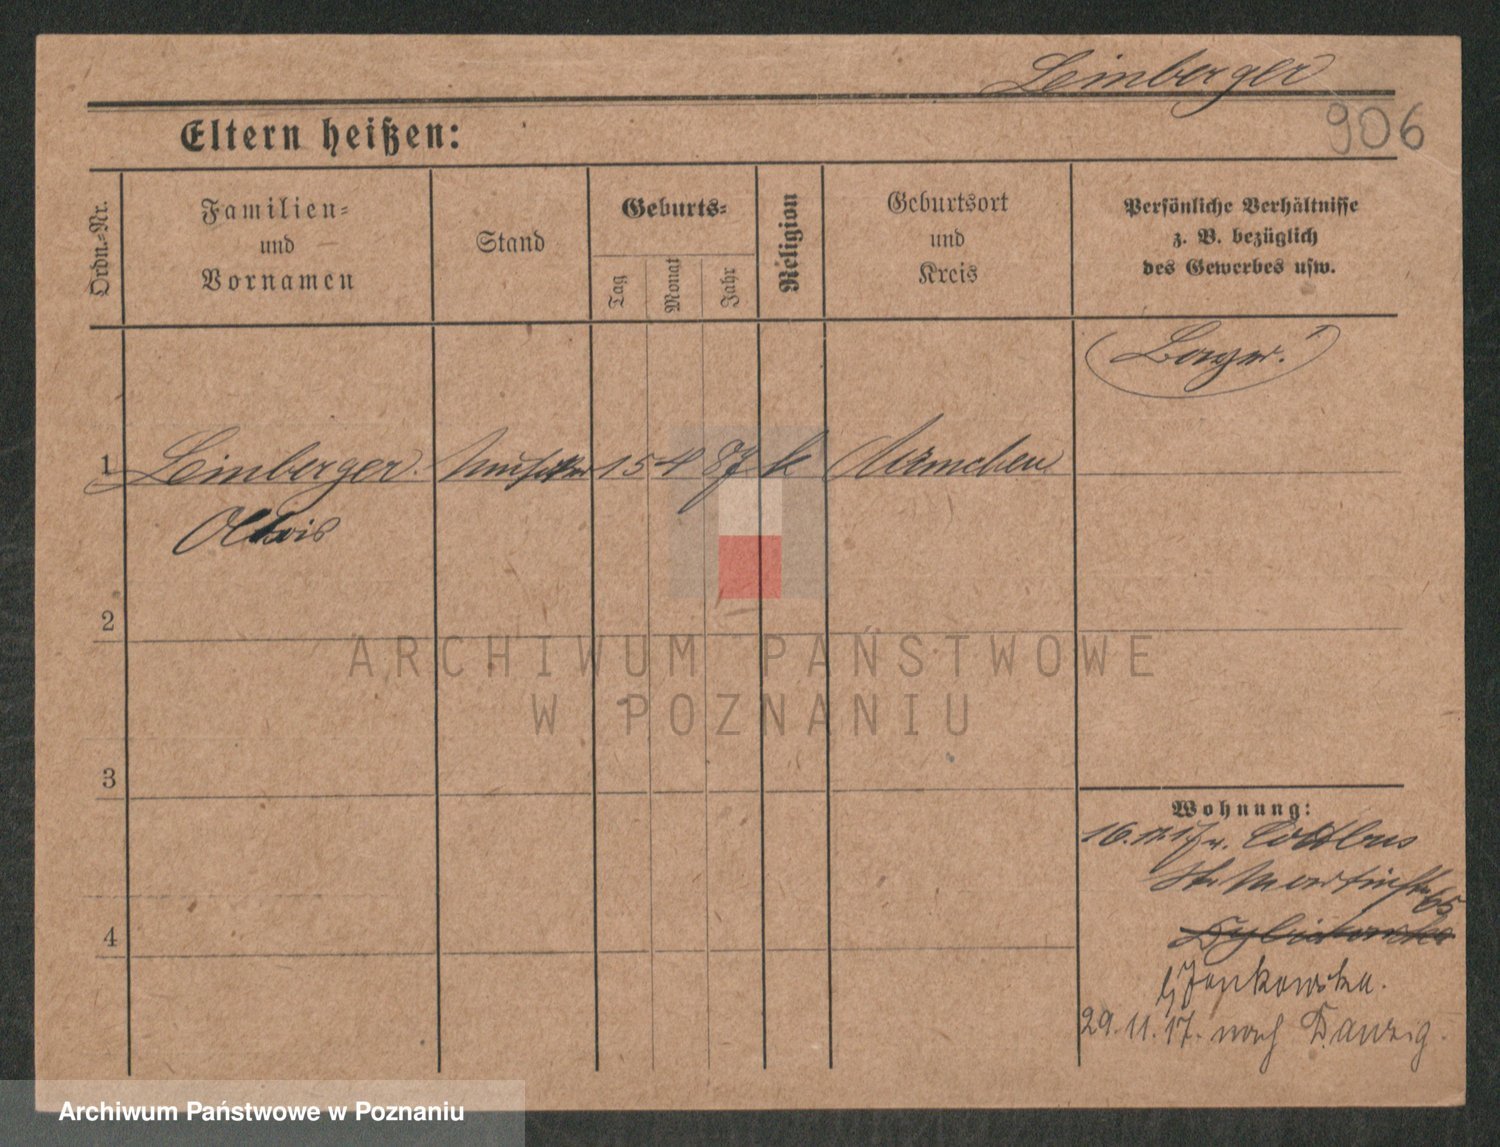 Leinberger
906
Eltern heißen:
Ordn.-Nr.
Familien-
und
Vornamen
Stand
Geburts-
Tag
Monat
Jahr
Religion
Geburtsort
und
Kreis
Persönliche Verhältnisse
z. B. bezüglich
des Gewerbes usw.
(Bayer.)
1 Leinberger Musiker 15 4 87 k München
Alois
2
ARCHIWUM PAŃSTWOWE
W POZNANIU
3
Wohnung:
16.11.17 v. Cottbus
St. Martinstr.
65
4
b/ Jankowska.
29.11.17. nach Danzig.
Archiwum Państwowe w Poznaniu